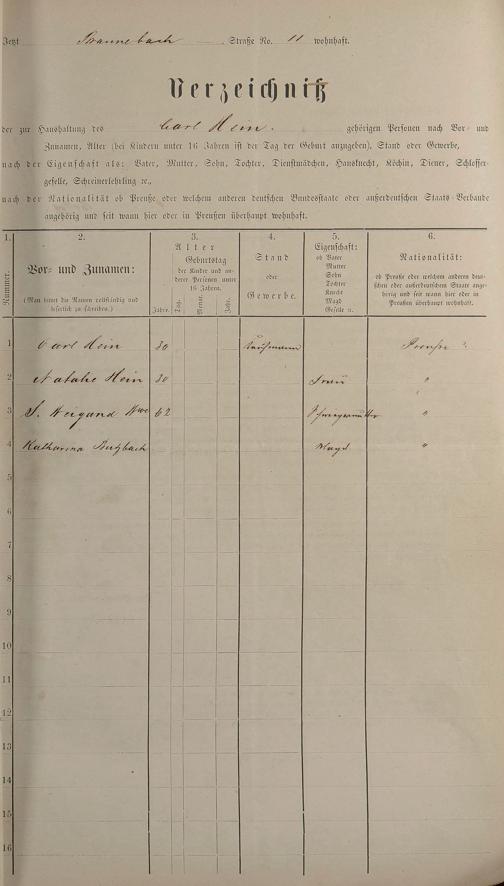 Jetzt Braunebach Straße No. 11 wohnhaft.
Verzeichniß
der zur Haushaltung des Carl Hein. gehörigen Personen nach Vor- und
Zunamen, Alter (bei Kindern unter 16 Jahren ist der Tag der Geburt anzugeben), Stand oder Gewerbe,
nach der Eigenschaft als: Vater, Mutter, Sohn, Tochter, Dienstmädchen, Hausknecht, Köchin, Diener, Schlosser-
geselle, Schreinerlehrling ꝛc.,
nach der Nationalität ob Preuße oder welchem anderen deutschen Bundesstaate oder außerdeutschen Staats-Verbande
angehörig und seit wann hier oder in Preußen überhaupt wohnhaft.
1. 2. 3. 4. 5. 6.
Nummer.
Vor- und Zunamen:
(Man bittet die Namen vollständig und
leserlich zu schreiben.)
Alter
Geburtstag
der Kinder und an-
derer Personen unter
16 Jahren.
Jahre. Tag. Monat. Jahr.
Stand
oder
Gewerbe.
Eigenschaft:
ob Vater
Mutter
Sohn
Tochter
Knecht
Magd
Geselle ꝛc.
Nationalität:
ob Preuße oder welchem anderen deut-
schen oder außerdeutschen Staate ange-
hörig und seit wann hier oder in
Preußen überhaupt wohnhaft.
1 Carl Hein 30 Kaufmann Preuße
2 Natalie Hein 30 Frau "
3 S. Weygand Wwe 62 Schwiegermutter "
4 Katharina Butzbach Magd "
5
6
7
8
9
10
11
12
13
14
15
16